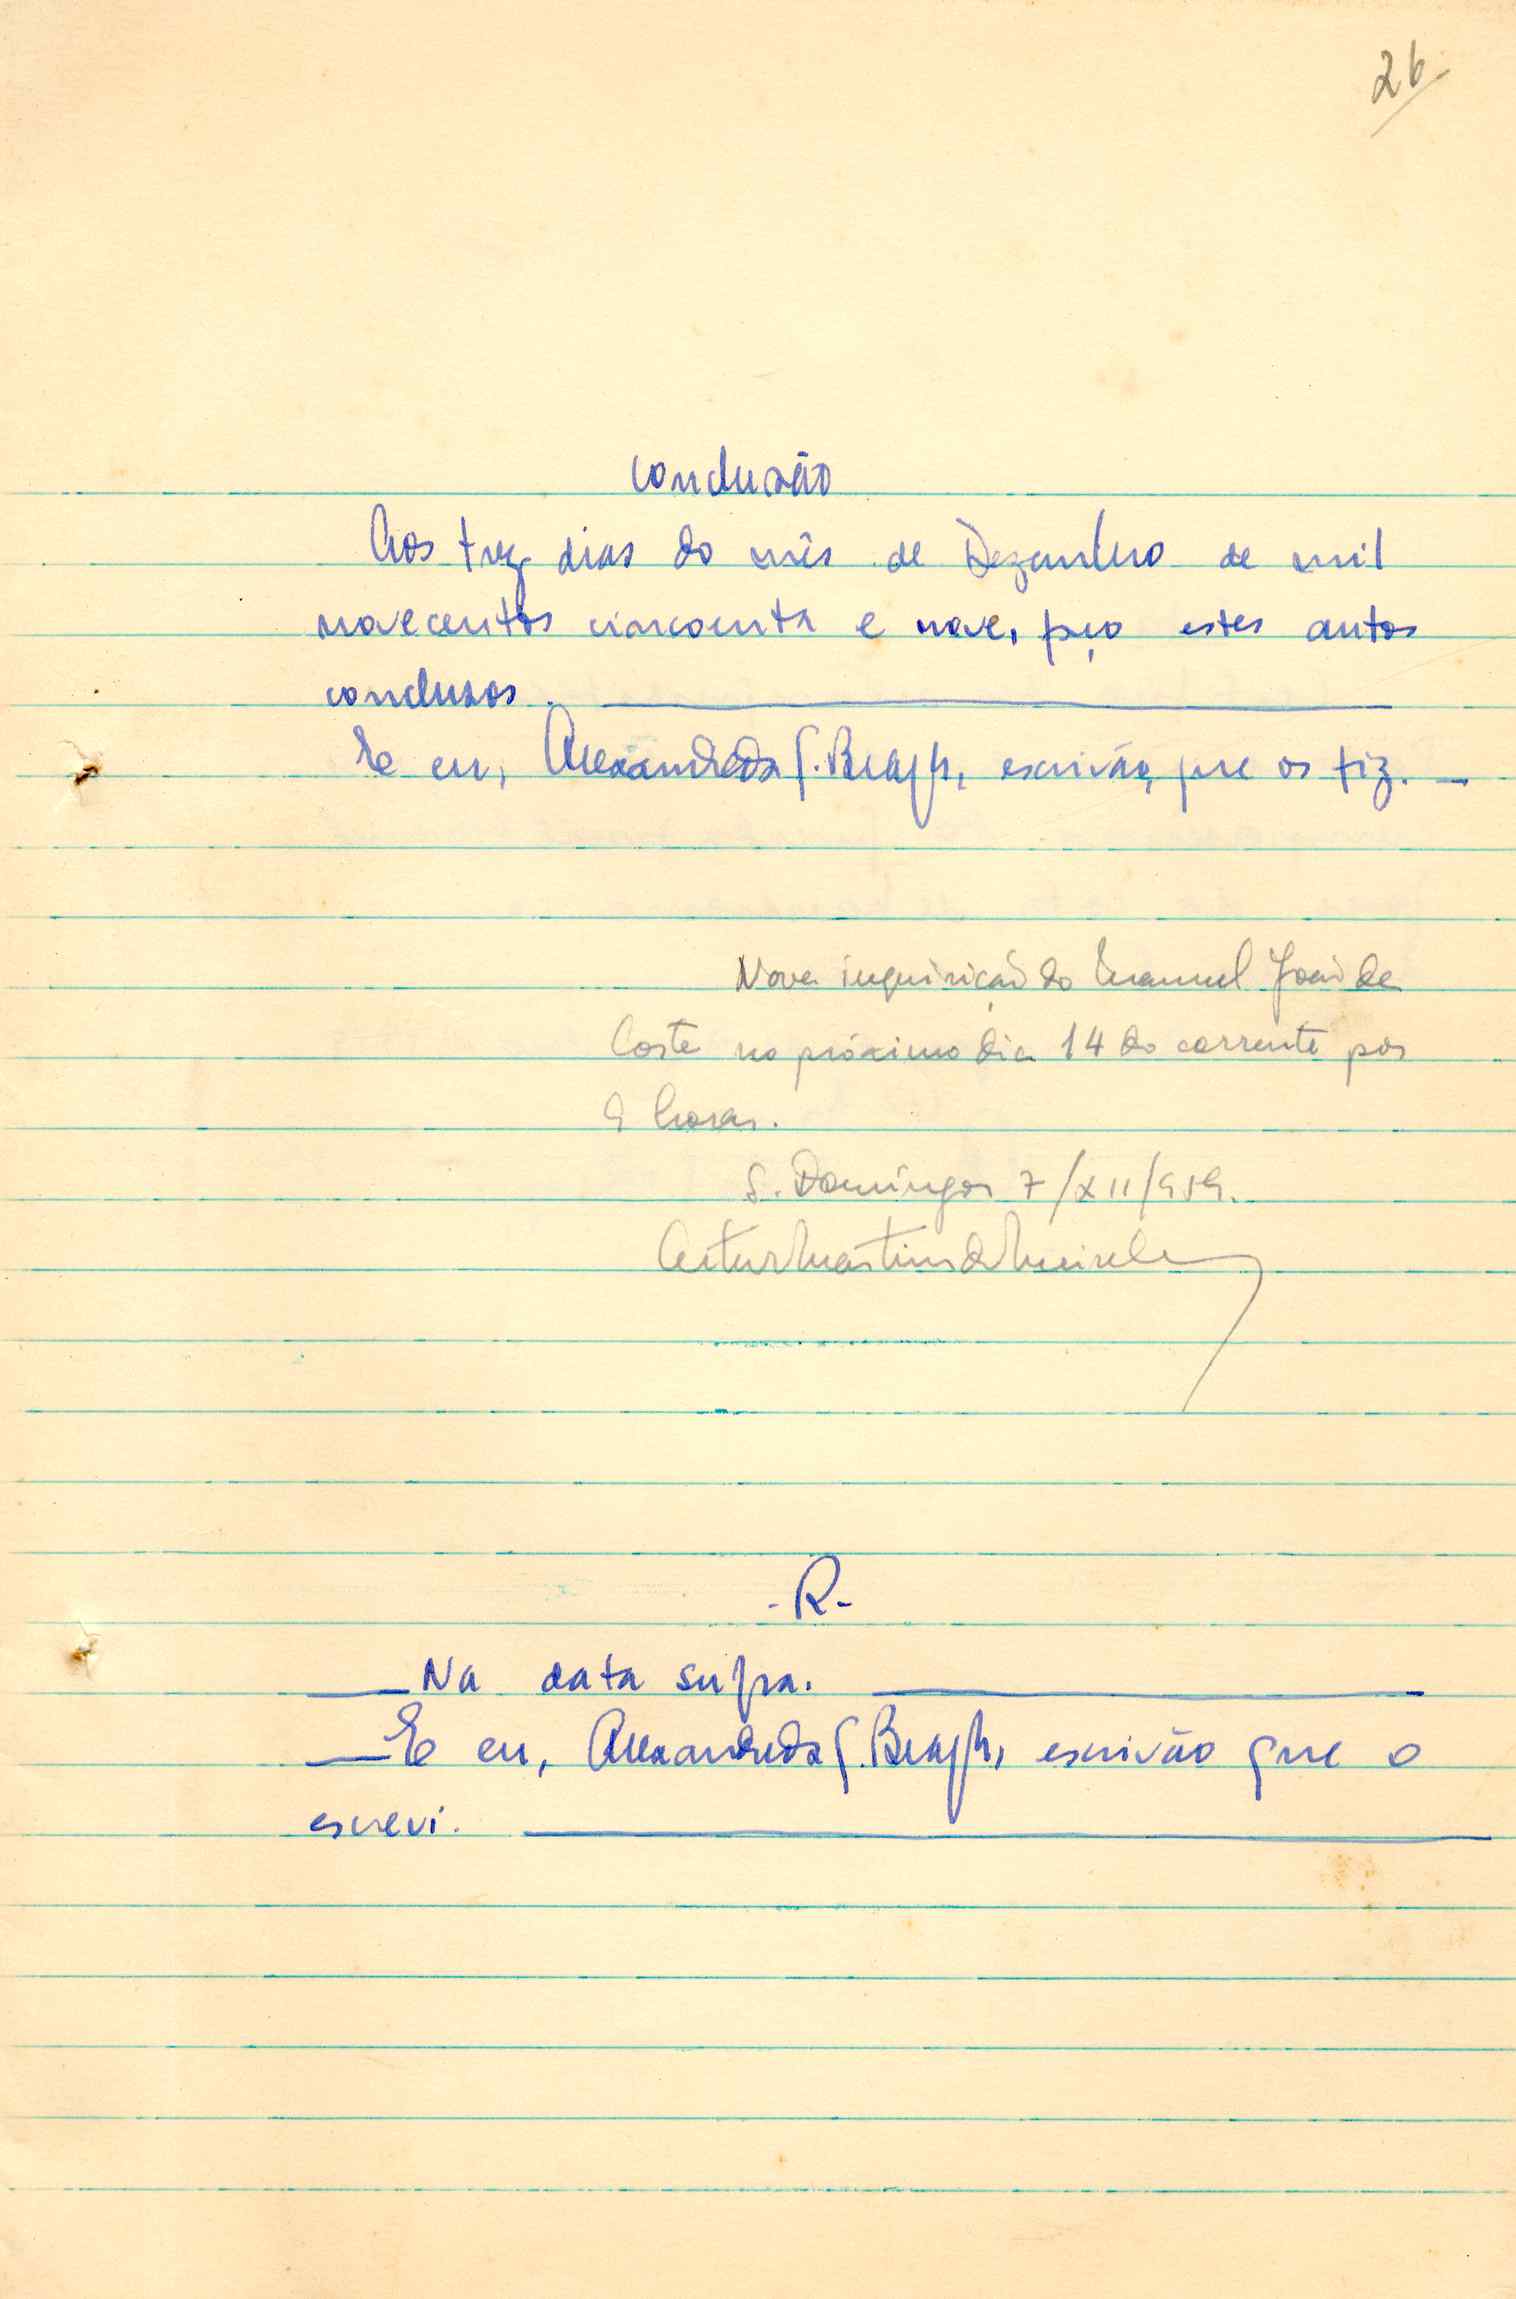 26
Conclusão
Aos trez dias do mês de Dezembro de mil
novecentos cincoenta e nove, faço estes autos
conclusos.
E eu, escrivão, que os fiz.
Nova inquirição do Manuel João da
Costa no próximo dia 14 do corrente pas
9 horas.
S. Domingos 7/XII/959.
Artur Martins de Meireles
-R-
Na data supra.
E eu, escrivão que o
escrevi.